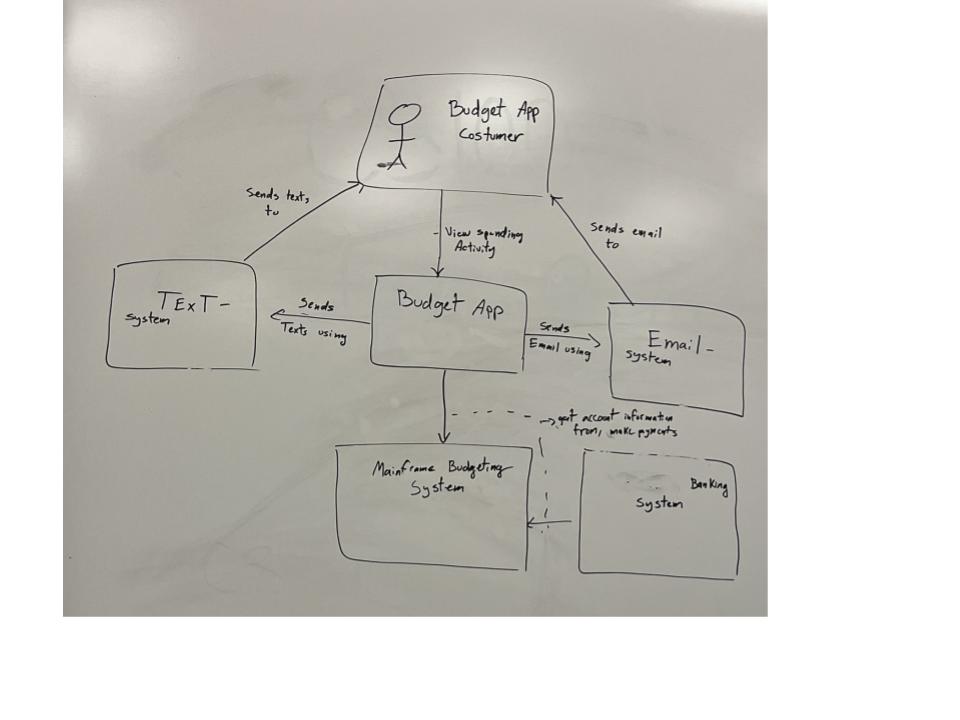 Budget App
Costumer
Sends texts
to
View spending
Activity
Sends email
to
TExT-
system
Sends
Texts using
Budget App
Sends
Email using
Email-
system
get account information
from, make pyments
Mainframe Budgeting
System
Banking
System